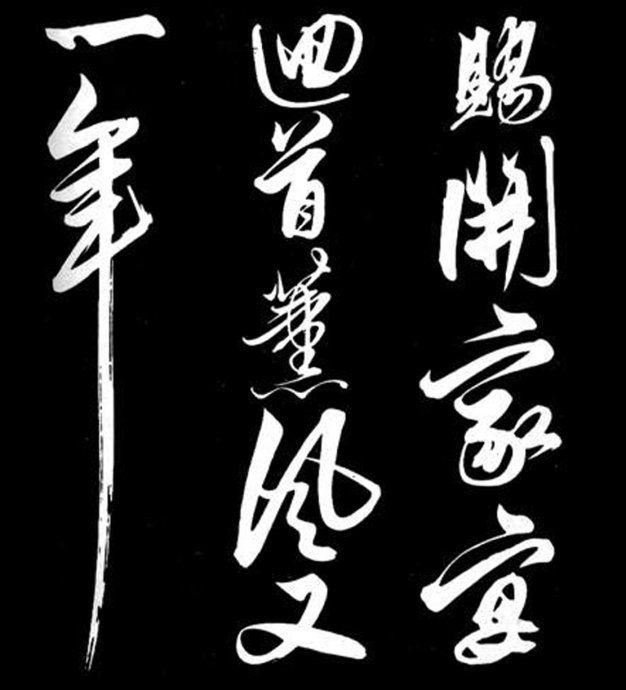 賜開家宴
迴首薰風又
一年